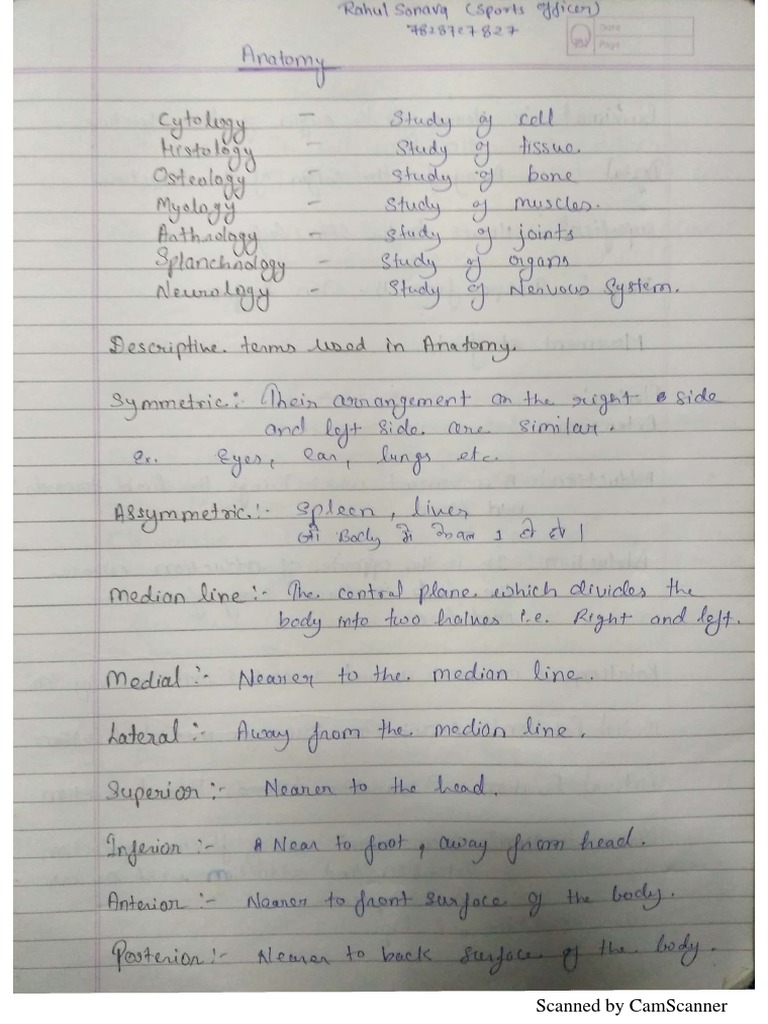 Rahul Sonava (Sports officer)
7828727827
Date
Page
Anatomy
Cytology - Study of cell
Histology - Study of tissue.
Osteology - Study of bone
Myology - Study of muscles.
Arthrology - Study of joints
Splanchnology - Study of organs
Neurology - Study of Nervous System.
Descriptive terms used in Anatomy.
Symmetric:- Their arrangement on the right side
and left side are similar.
Ex. Eyes, ear, lungs etc.
Assymmetric:- Spleen, liver
जो Body में केवल 1 ही हो।
Median line:- The central plane which divides the
body into two halves i.e. Right and left.
Medial:- Nearer to the median line.
Lateral:- Away from the median line.
Superior:- Nearer to the head.
Inferior:- Near to foot, away from head.
Anterior:- Nearer to front surface of the body.
Posterior:- Nearer to back surface of the body.
Scanned by CamScanner